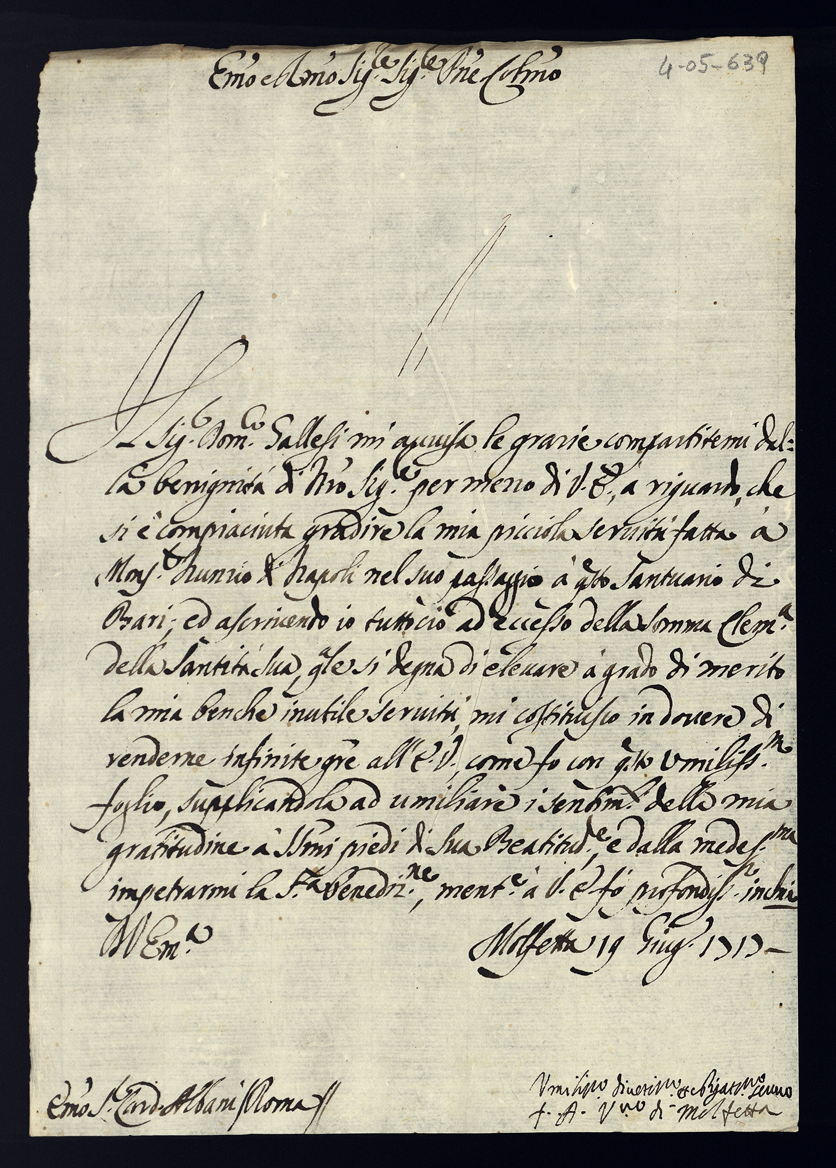 Emo e Rmo Sigre Sigre Pne Colmo
4-05-639
Il Sigr Domco Gallesi mi avvisa le grazie compartitemi dal-
la benignità di Nro Sigre per mezo di V. E., à riguardo, che
si è compiaciuta gradire la mia picciola servitù fatta à
Monsr Nunzio di Napoli nel suo passaggio à qsto Santuario di
Bari; ed ascrivendo io tutto ciò ad eccesso della somma Clemza
della Santità sua, qle si degna di elevare à grado di merito
la mia benche inutile servitù, mi costituisco in dovere di
renderne infinite gre all'E. V., come fo con qsto umilissmo
foglio, supplicandola ad umiliare i sentimti della mia
gratitudine à SSmi piedi di Sua Beatitude, e dalla medesma
impetrarmi la Sta benedizne, mente à V. E. fò profondissmo inchino
Di V Emza
Molfetta 19 Giugo 1717
Emo Sr Card. Albani / Roma //
Umilismo divotismo et obligatmo servo
f. A. Vvo di Molfetta